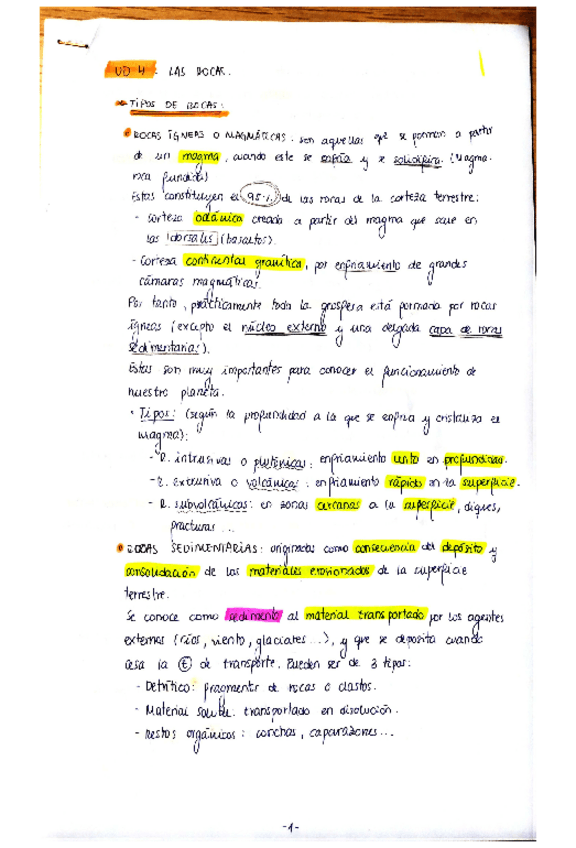 UD 4. LAS ROCAS.
TIPOS DE ROCAS:
ROCAS ÍGNEAS O MAGMÁTICAS: son aquellas que se forman a partir
de un magma, cuando este se enfría y se solidifica. (Magma:
roca fundida)
Estas constituyen el 95% de las rocas de la corteza terrestre:
- Corteza oceánica creada a partir del magma que sale en
las dorsales (basaltos).
- Corteza continental granítica, por enfriamiento de grandes
cámaras magmáticas.
Por tanto, prácticamente toda la geosfera está formada por rocas
ígneas (excepto el núcleo externo y una delgada capa de rocas
sedimentarias).
Estas son muy importantes para conocer el funcionamiento de
nuestro planeta.
· Tipos: (según la profundidad a la que se enfría y cristaliza el
magma):
- R. intrusivas o plutónicas: enfriamiento lento en profundidad.
- R. extrusiva o volcánicas: enfriamiento rápido en la superficie.
- R. subvolcánicas: en zonas cercanas a la superficie, diques,
fracturas...
ROCAS SEDIMENTARIAS: originadas como consecuencia del depósito y
consolidación de los materiales erosionados de la superficie
terrestre.
Se conoce como sedimento al material transportado por los agentes
externos (ríos, viento, glaciares...), y que se deposita cuando
cesa la E de transporte. Pueden ser de 3 tipos:
- Detrítico: fragmentos de rocas o clastos.
- Material soluble: transportado en disolución.
- Restos orgánicos: conchas, caparazones...
-1-